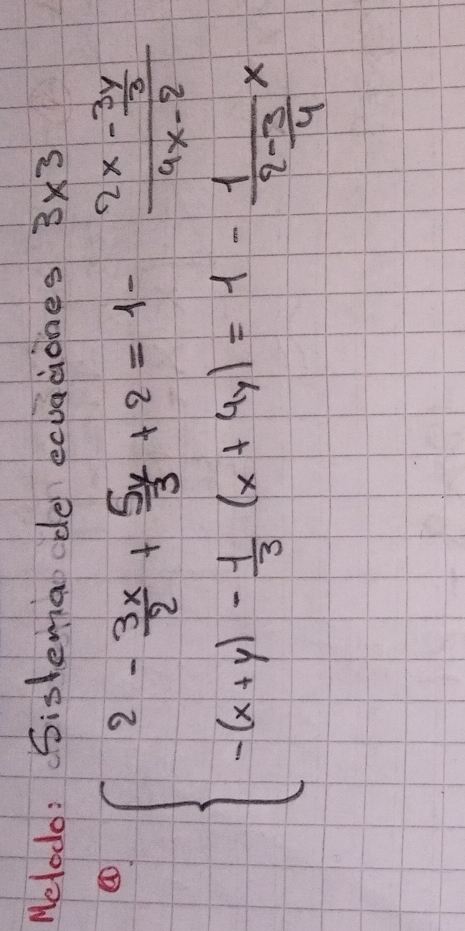 Metodo: Sistema de ecuaciones 3x3
a) { 2 - 3x/2 + 5y/3 + 2 = 1 - (2x - 3y/3)/(4x - 2)
-(x + y) - 1/3 (x + 4y) = 1 - 1/((2 - 3)/4) x